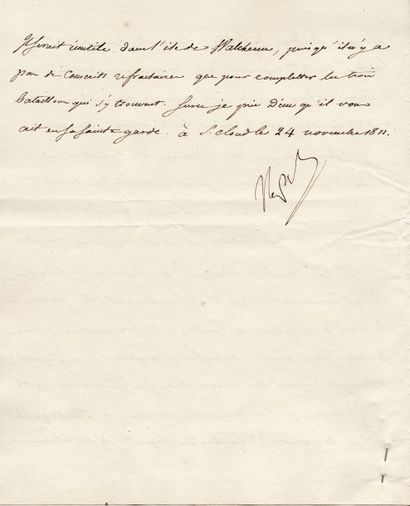 Il serait inutile dans l'ile de Walcheren, puis qu'il n'y a
pas de conscrits refractaires que pour completter les trois
bataillons qui s'y trouvent. Sur ce je prie Dieu qu'il vous
ait en sa sainte garde. à St. Cloud le 24 novembre 1811.
Nap